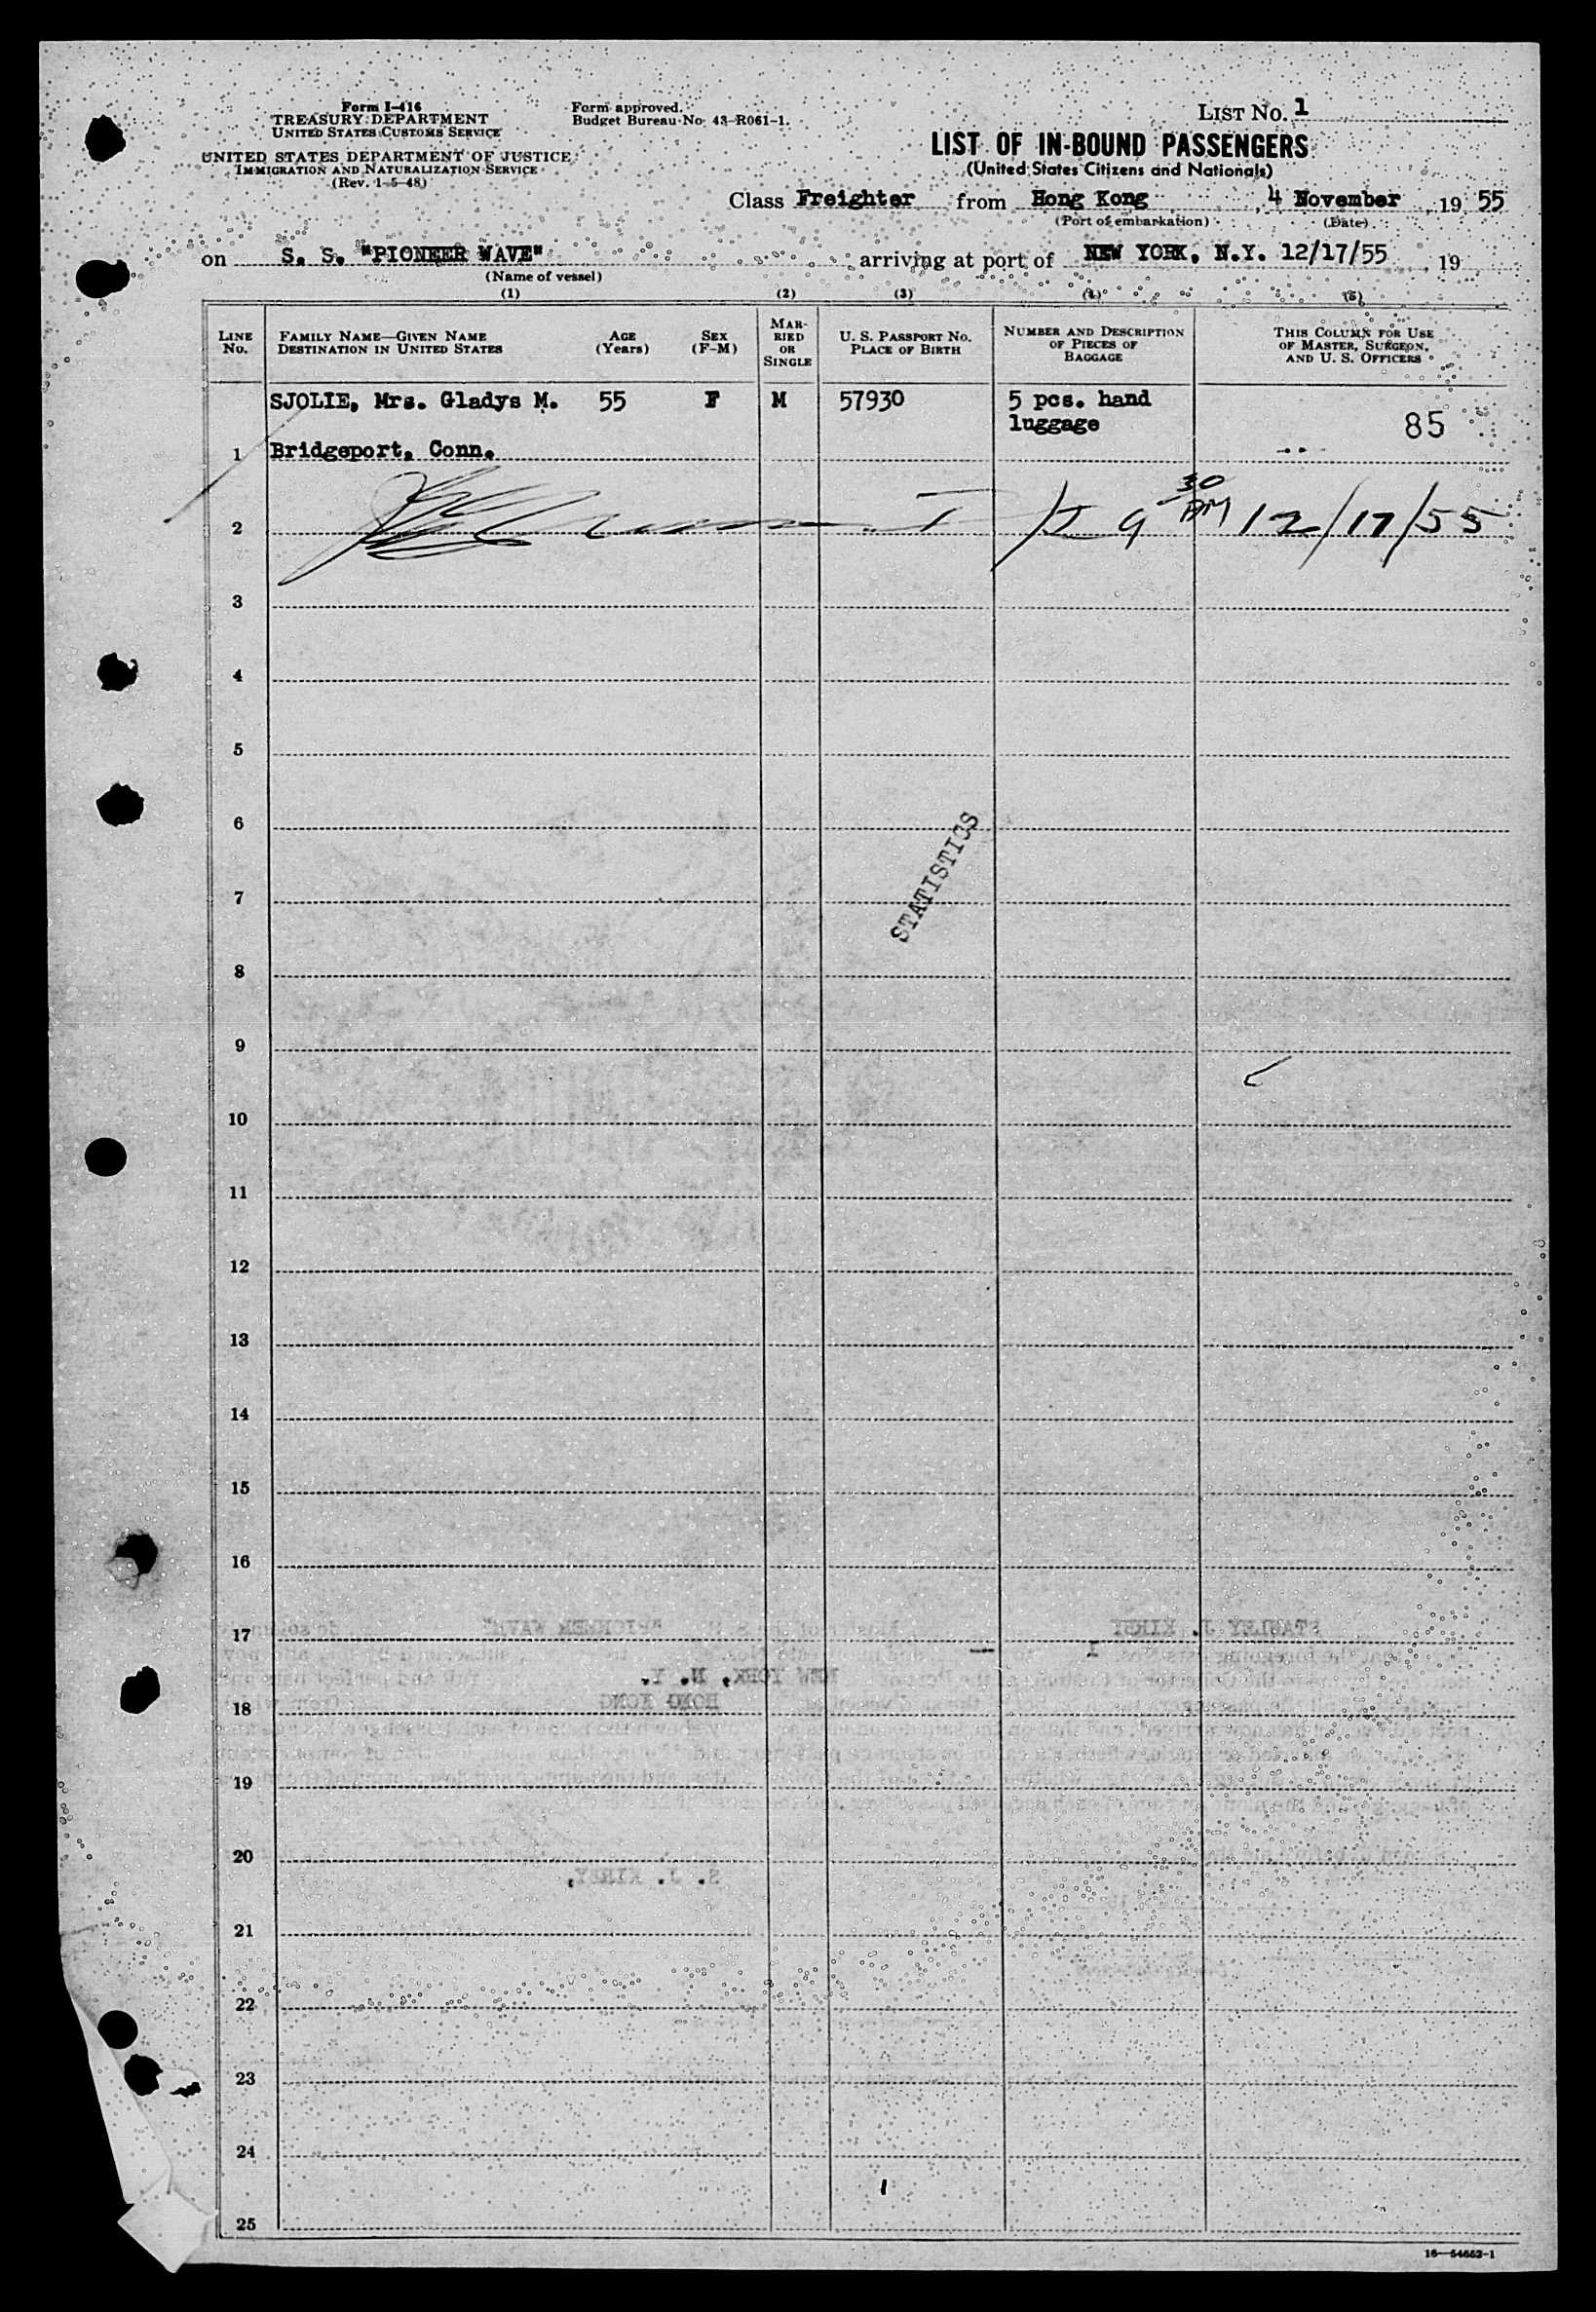 Form I-416
TREASURY DEPARTMENT
UNITED STATES CUSTOMS SERVICE
UNITED STATES DEPARTMENT OF JUSTICE
IMMIGRATION AND NATURALIZATION SERVICE
(Rev. 1-5-48)
Form approved.
Budget Bureau No. 43-R061-1.
LIST No. 1
LIST OF IN-BOUND PASSENGERS
(United States Citizens and Nationals)
Class Freighter from Hong Kong, 4 November, 19 55
(Port of embarkation) (Date)
on S. S. "PIONEER WAVE" arriving at port of NEW YORK, N.Y. 12/17/55, 19
(Name of vessel)
(1) (2) (3) (4) (5)
LINE No. FAMILY NAME—GIVEN NAME DESTINATION IN UNITED STATES AGE (Years) SEX (F-M) MARRIED OR SINGLE U. S. PASSPORT NO. PLACE OF BIRTH NUMBER AND DESCRIPTION OF PIECES OF BAGGAGE THIS COLUMN FOR USE OF MASTER, SURGEON, AND U. S. OFFICERS
SJOLIE, Mrs. Gladys M. 55 F M 57930 5 pcs. hand
luggage 85
1 Bridgeport, Conn.
2 9 30 PM 12/17/55
3
4
5
6
STATISTICS
7
8
9
10
11
12
13
14
15
16
17
18
19
20
21
22
23
24
25
16—54652-1